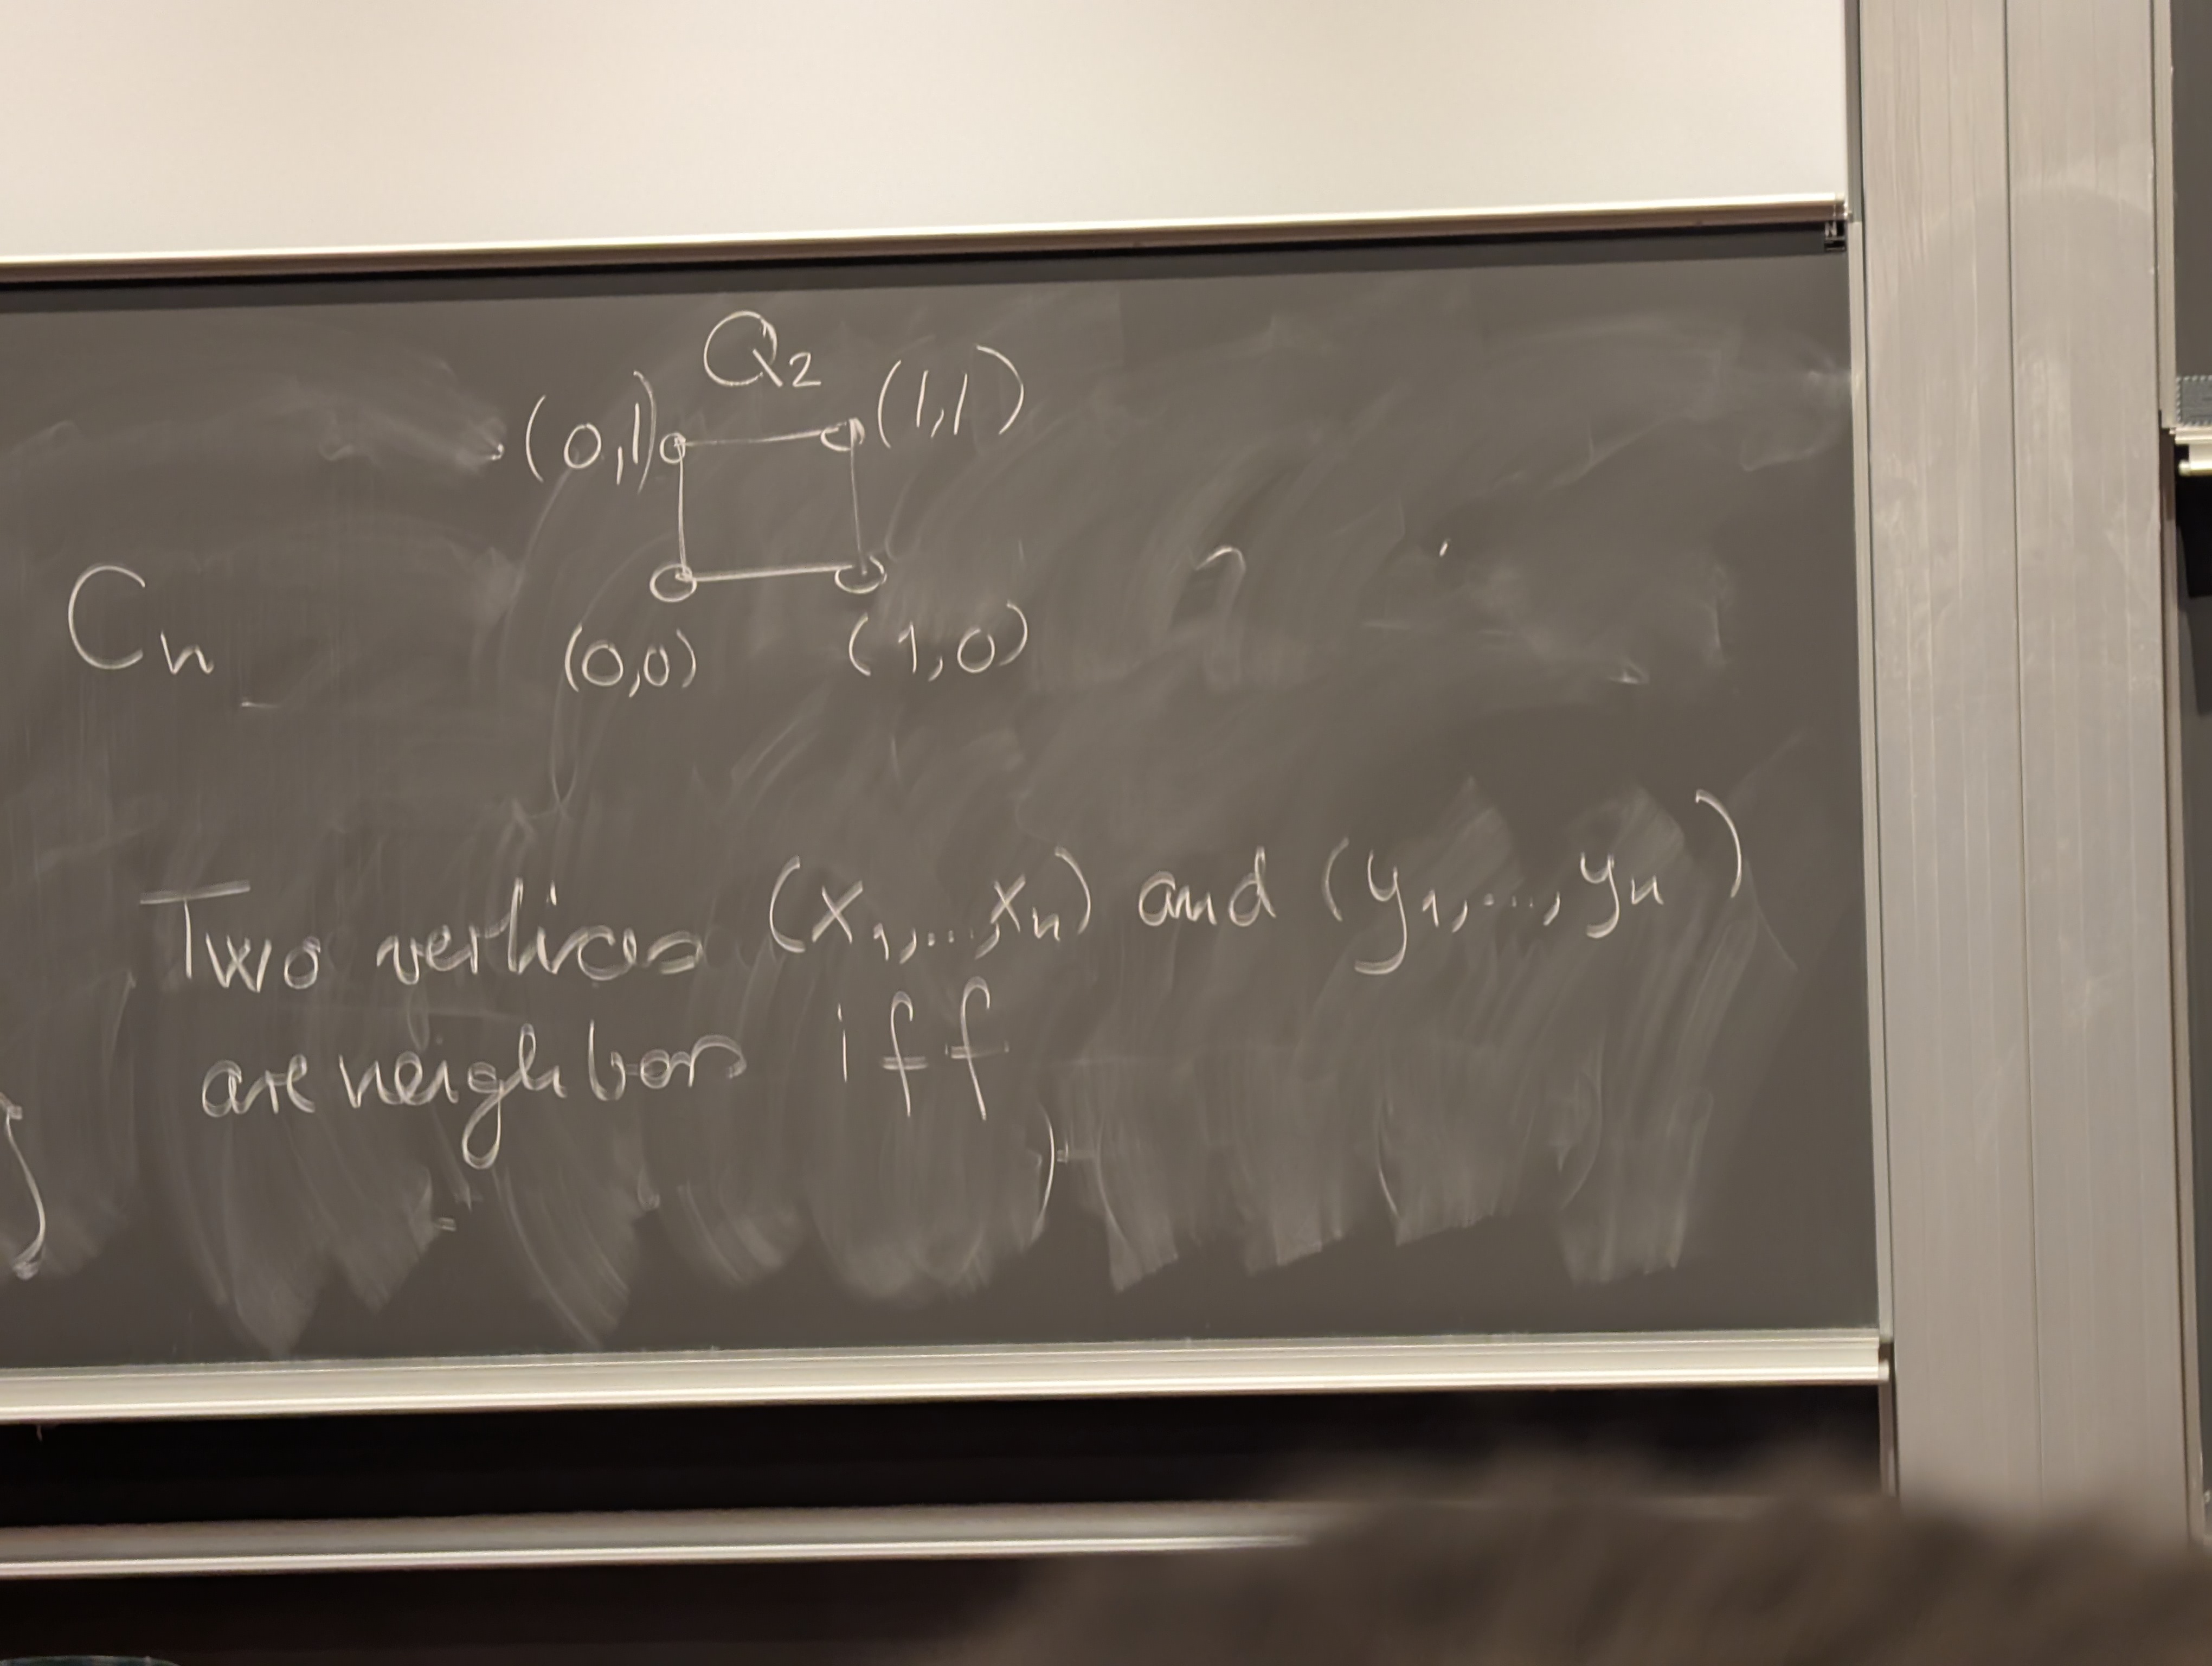 Q₂
(0,1) (1,1)
Cₙ
(0,0) (1,0)
Two vertices (x₁,...,xₙ) and (y₁,...,yₙ)
are neighbors iff